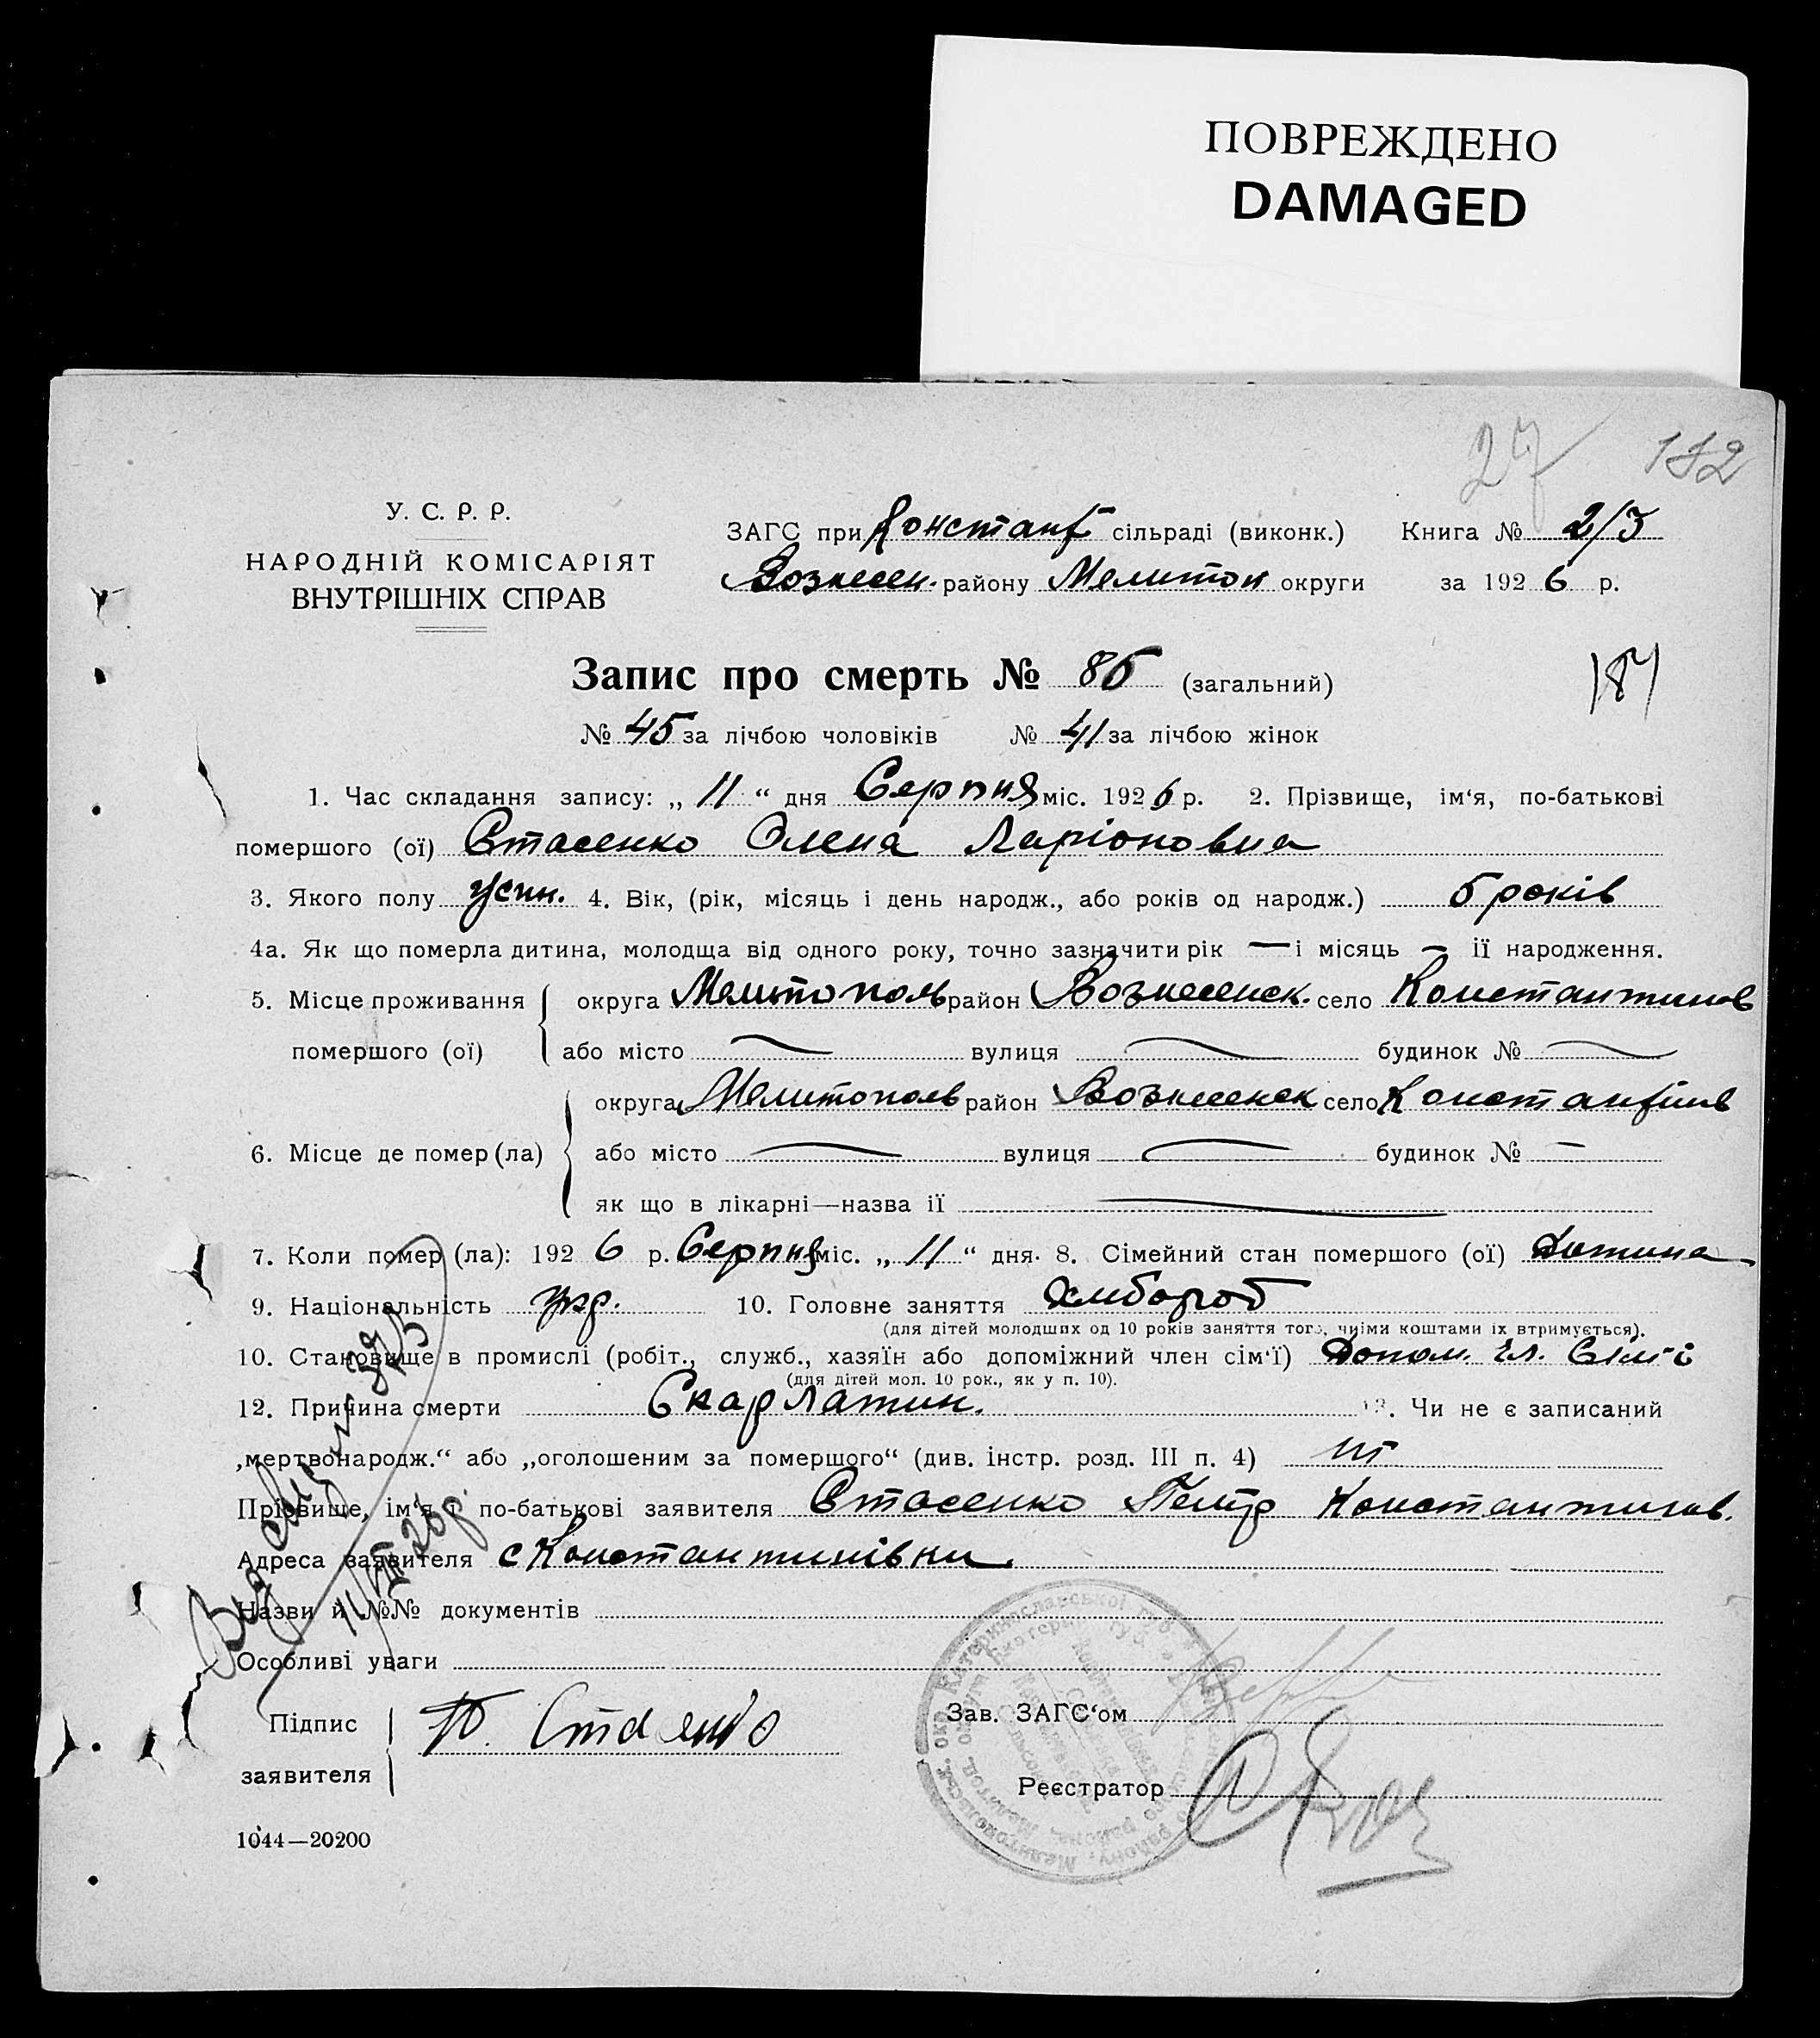 ПОВРЕЖДЕНО
DAMAGED
27 182
У. С. Р. Р.
НАРОДНІЙ КОМІСАРІЯТ
ВНУТРІШНІХ СПРАВ
ЗАГС при Констант сільраді (виконк.) Книга № 2/3
Вознесен. району Мелитоп округи за 1926 р.
Запис про смерть № 86 (загальний)
187
№ 45 за лічбою чоловіків № 41 за лічбою жінок
1. Час складання запису: „ 11 “ дня Серпня міс. 1926 р. 2. Прізвище, ім‘я, по-батькові
помершого (ої) Стасенко Олена Ларіоновна
3. Якого полу 4. Вік, (рік, місяць і день народж., або років од народж.) 5 років
4а. Як що померла дитина, молодща від одного року, точно зазначити рік — і місяць — її народження.
5. Місце проживання округа Мелитополь район Вознесенск. село Константинов
помершого (ої) або місто — вулиця — будинок № —
округа Мелитополь район Вознесенск село Константинов
6. Місце де помер (ла) або місто — вулиця — будинок № —
як що в лікарні—назва її —
7. Коли помер (ла): 1926 р. Серпня міс. „ 11 “ дня. 8. Сімейний стан помершого (ої) Дитина
9. Національність укр. 10. Головне заняття Хлібороб
(для дітей молодших од 10 років заняття того, чиїми коштами їх втримується).
10. Становище в промислі (робіт., служб., хазяїн або допоміжний член сім‘ї) Допом. чл. Сімї
(для дітей мол. 10 рок., як у п. 10).
12. Причина смерти Скарлатин. 13. Чи не є записаний
„мертвонародж.“ або „оголошеним за помершого“ (див. інстр. розд. III п. 4) ні
Прізвище, ім‘я і по-батькові заявителя Стасенко Петр Константинов.
Адреса заявителя с Константинівки
Назви й №№ документів
Особливі уваги
Підпис
заявителя
П. Стасенко
Зав. ЗАГС‘ом
Реєстратор
1044—20200